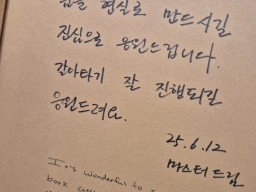 꿈을 현실로 만드시길
진심으로 응원드립니다.
갈아타기 잘 진행되길
응원드려요.
25.6.12
마스터드림
It's wonderful to
book